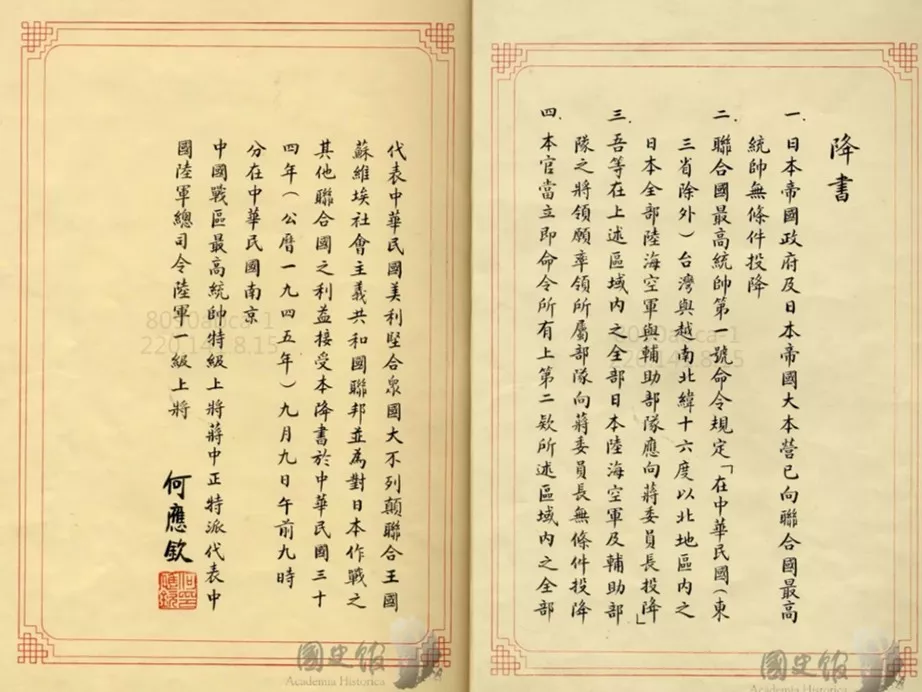 降書
一．日本帝國政府及日本帝國大本營已向聯合國最高
統帥無條件投降
二．聯合國最高統帥第一號命令規定「在中華民國（東
三省除外）台灣與越南北緯十六度以北地區內之
日本全部陸海空軍與輔助部隊應向蔣委員長投降」
三．吾等在上述區域內之全部日本陸海空軍及輔助部
隊之將領願率領所屬部隊向蔣委員長無條件投降
四．本官當立即命令所有上第二欵所述區域內之全部
代表中華民國美利堅合衆國大不列顛聯合王國
蘇維埃社會主義共和國聯邦並為對日本作戰之
其他聯合國之利益接受本降書於中華民國三十
四年（公曆一九四五年）九月九日午前九時
分在中華民國南京
中國戰區最高統帥特級上將蔣中正特派代表中
國陸軍總司令陸軍一級上將
何應欽
何應欽
國史館
Academia Historica
國史館
Academia Historica